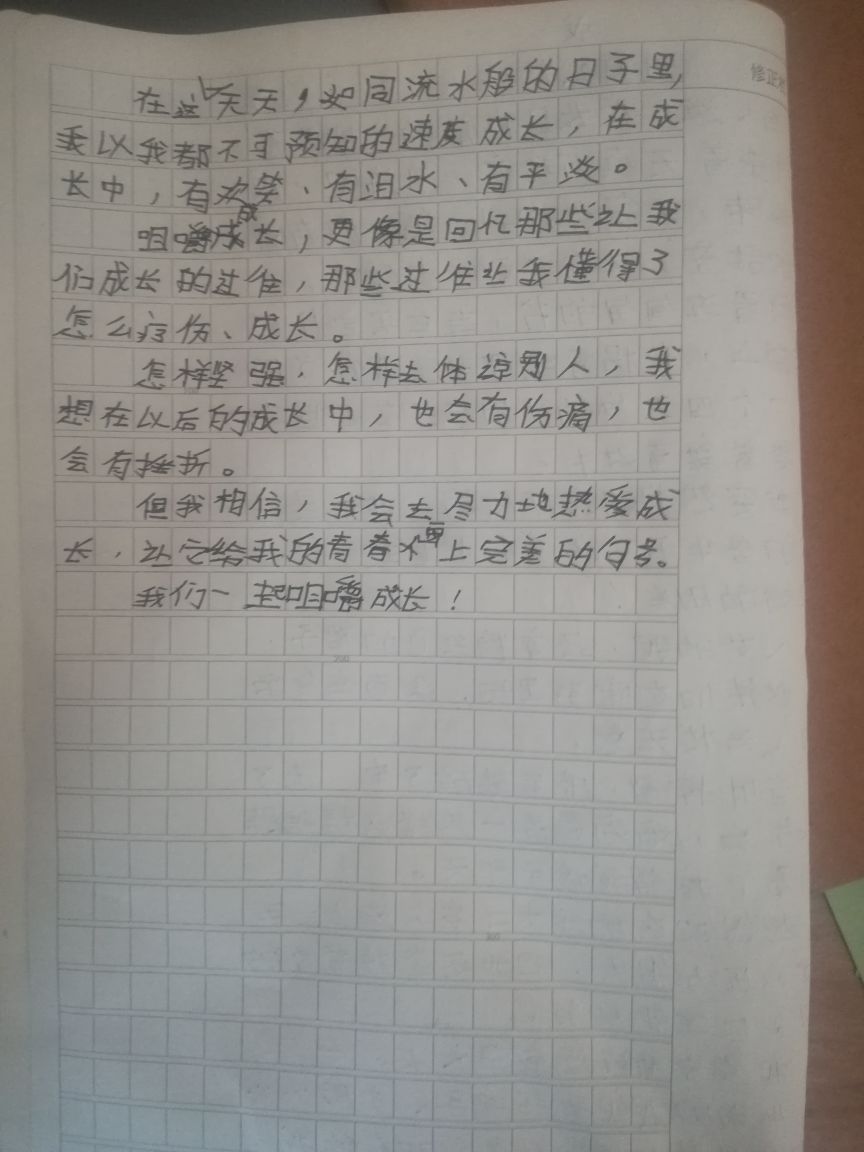 修正
在这一天天，如同流水般的日子里，
我以我都不可预知的速度成长，在成
长中，有欢笑、有泪水、有平淡。
咀嚼成长，更像是回忆那些让我
们成长的过往，那些过往让我懂得了
怎么疗伤、成长。
怎样坚强，怎样去体谅别人，我
想在以后的成长中，也会有伤痛，也
会有挫折。
但我相信，我会去尽力地热爱成
长，让它给我的青春画上完美的句号。
我们一起咀嚼成长！
200
300